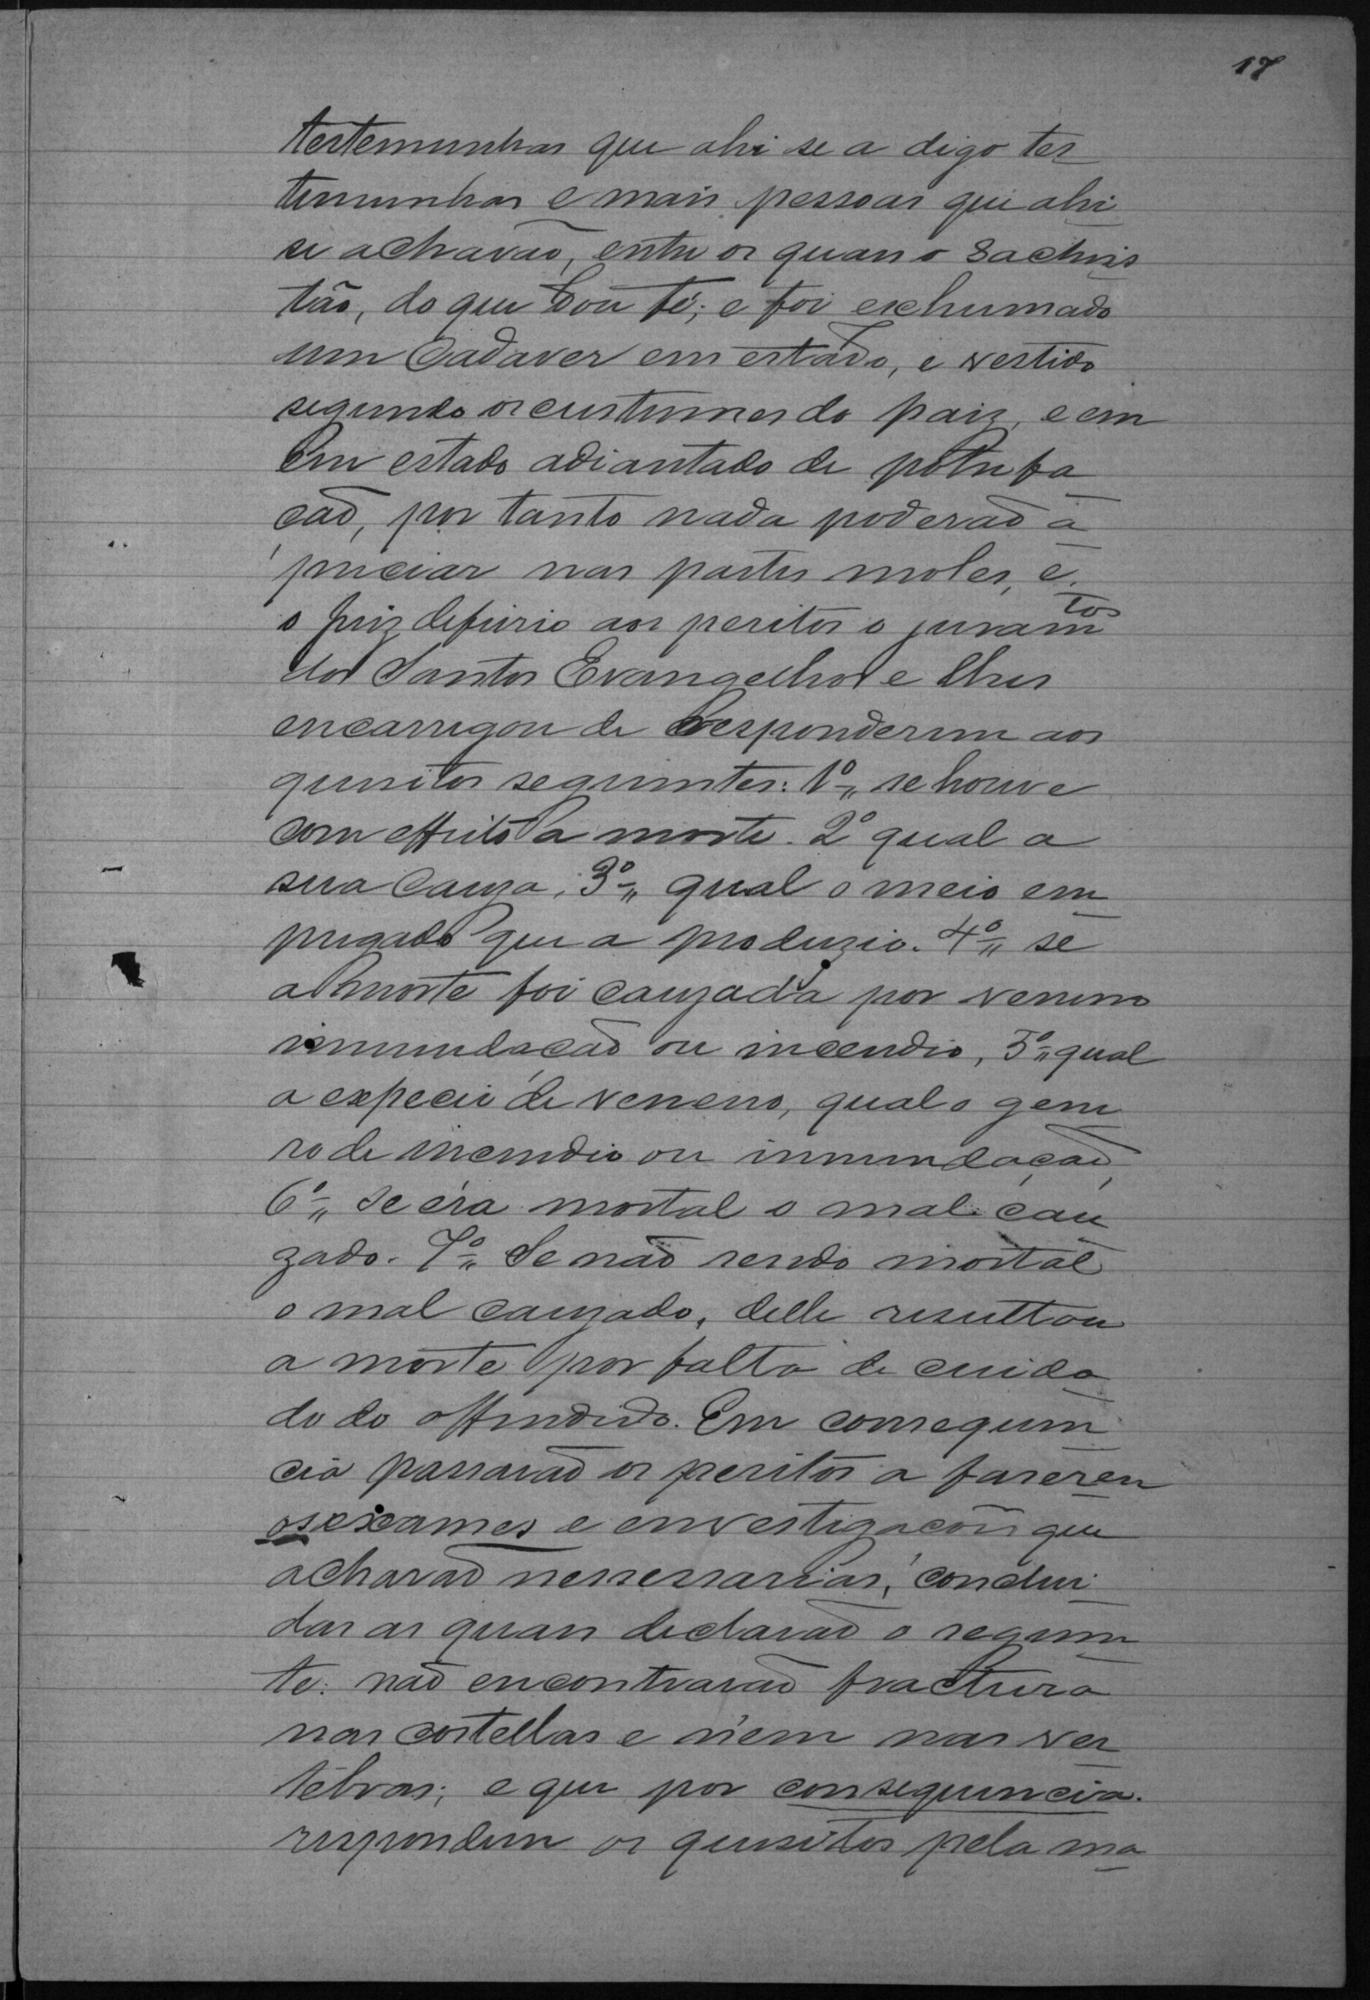 17
testemunhas que ahi se a digo tes
temunhas e mais pessoas que ahi
se achavão, entre os quaes o Sachris
tão, do que dou fé; e foi exhumado
um Cadaver em estado, e vestido
segundo os custumes do paiz, e em
Em estado adiantado de potrefa
cão, por tanto nada poderão a
preciar nas partes moles, e
o Juiz deferio aos peritos o juramtos
dos Santos Evangelhos e lhes
encarregou de responderem aos
quesitos seguintes: 1º se houve
com effeito a morte. 2º qual a
sua Cauza, 3º qual o meio em
pregado que a produzio. 4º se
a morte foi cauzada por veneno
innundação ou incendio, 5º qual
a expecie de veneno, qual o gene
ro de incendio ou innundação,
6º se éra mortal o mal cau
zado. 7º Se não sendo mortal
o mal cauzado, delle resultou
a morte por falta de cuida
do do offendido. Em consequen
cia passarão os peritos a fazeren
os exames e envestigações que
acharão nessessarias, conclui
das as quaes declarão o seguin
te: não encontrarão fractura
nas costellas e nem nas ver
tebras; e que por consequencia
respondem os quesitos pela ma